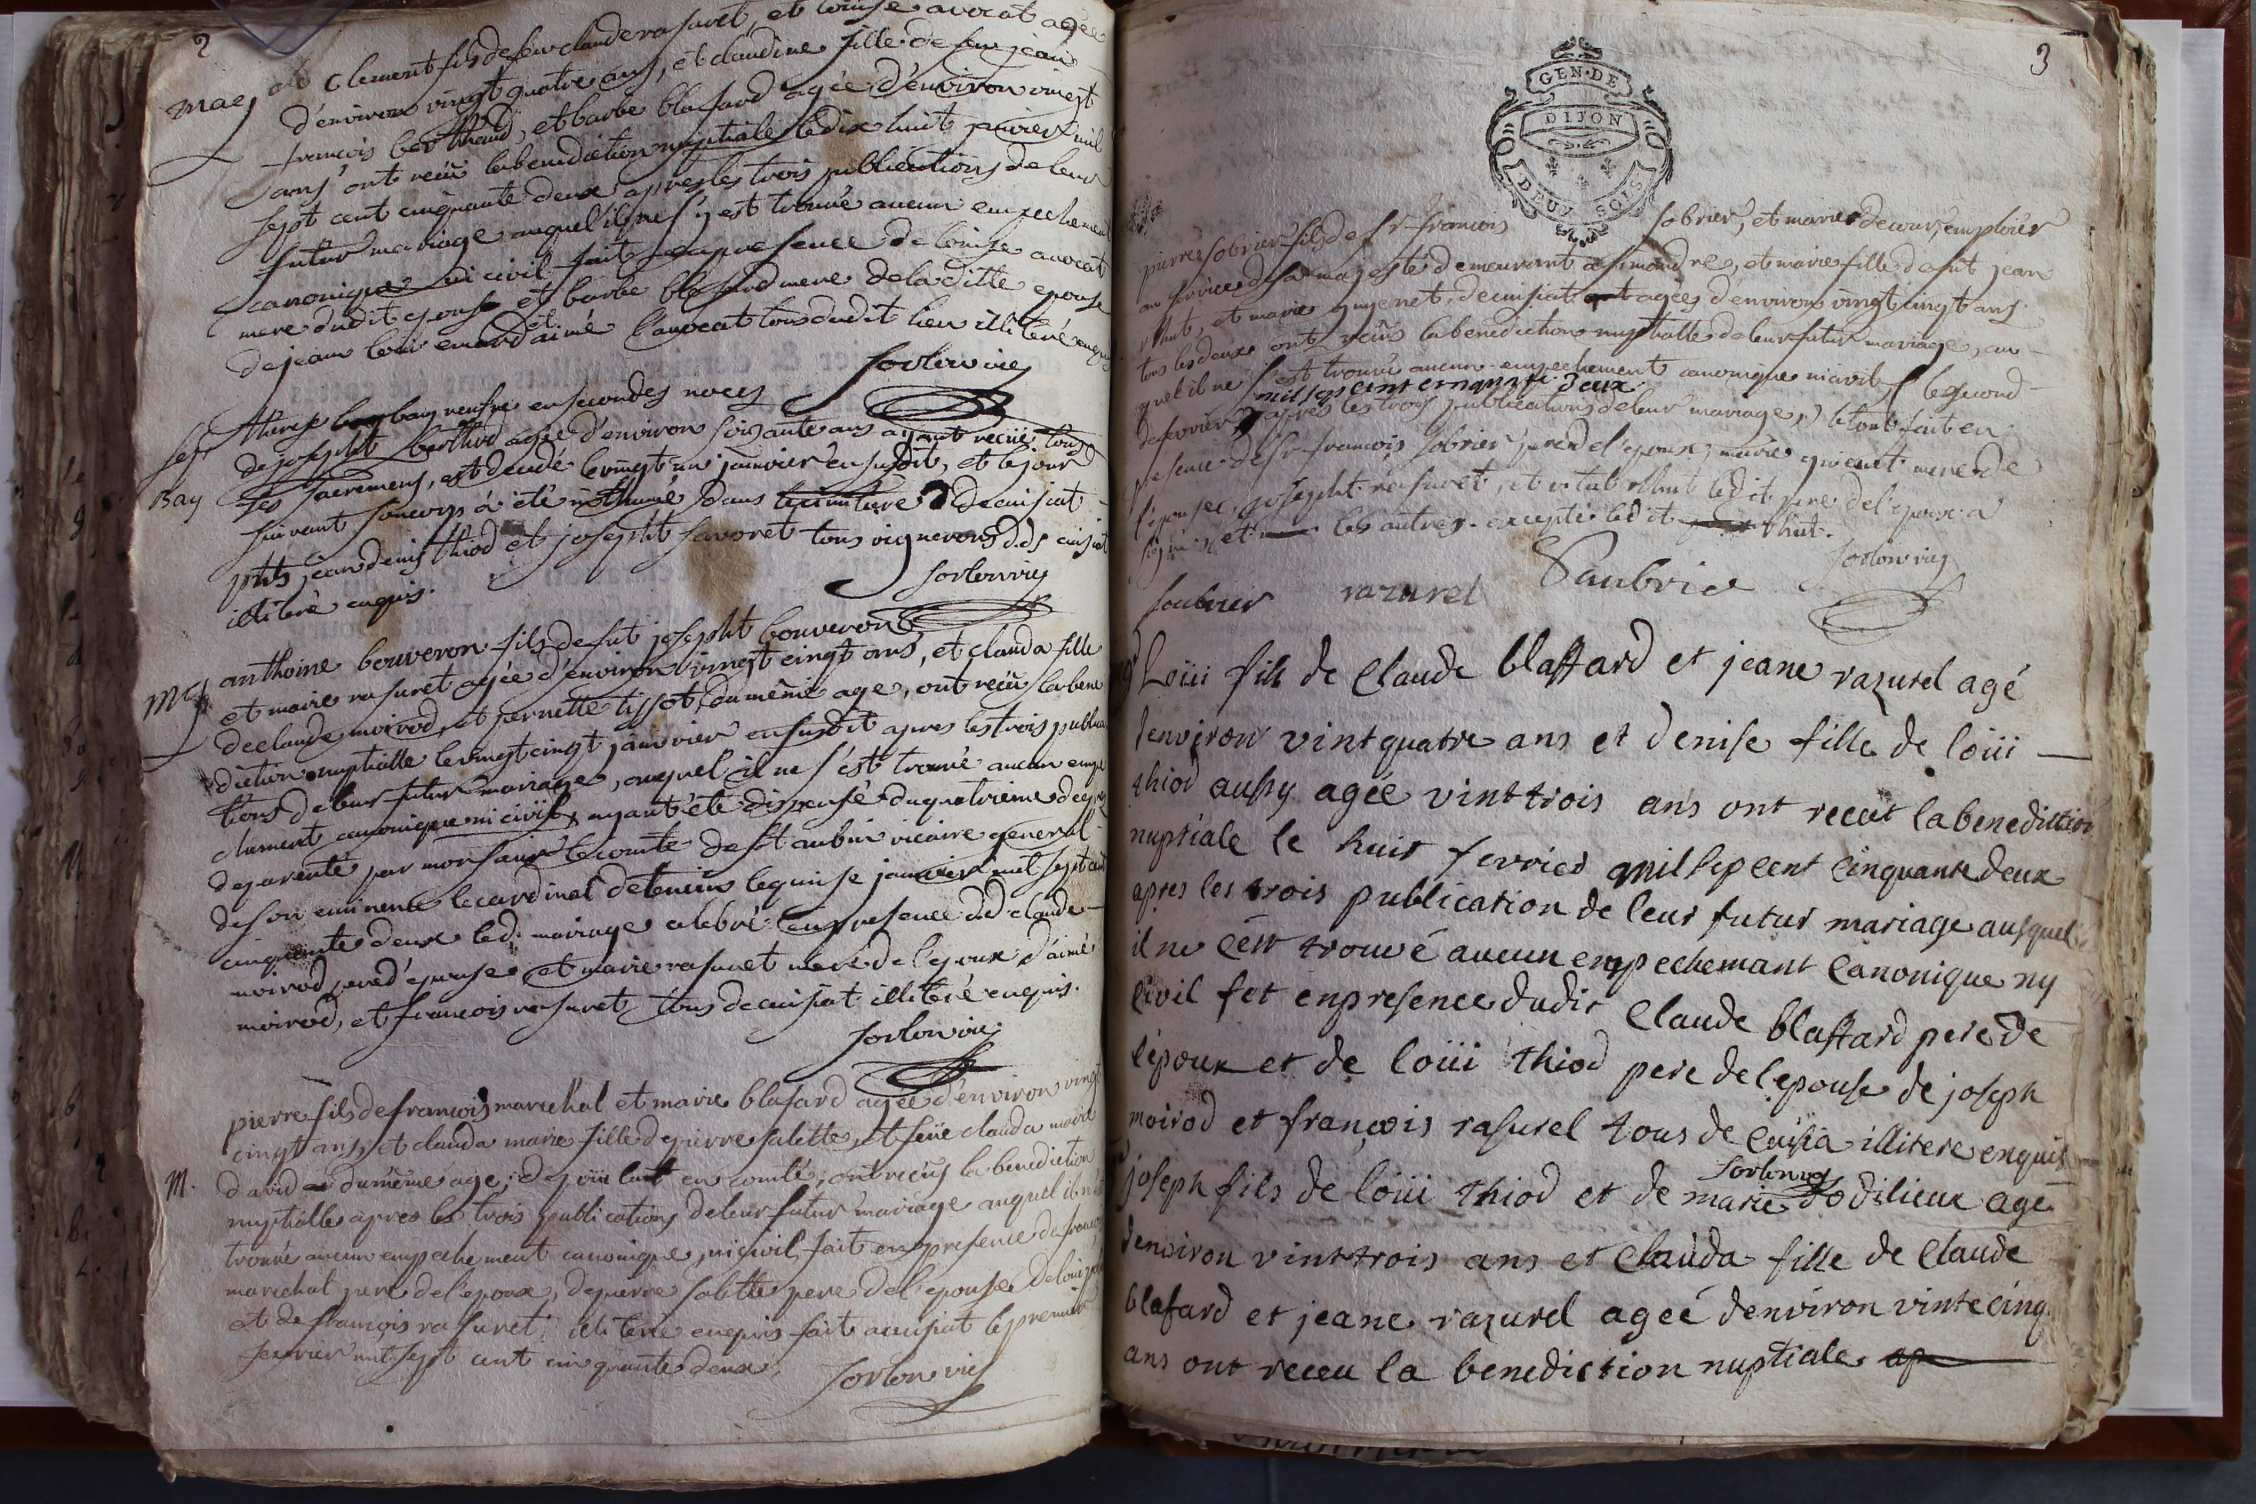 2
mar
clement fils de feu claude rasurel, et louise avocat agée
d'environ vingt quatre ans, et claudine fille de feu jean
francois berthaud, et barbe blasard agée d'environ vingt
ans, ont reçü la benediction nuptiale le dix huit janvier mil
sept cent cinquante deux apres les trois publications de leur
futur mariage auquel il ne s'y est trouvé aucun empechement
canonique ni civil fait en presence de louise avocat
mere dudit epouse et barbe blasard mere de la ditte epouse
de jean loui emard et aimé l'avocat tous dudit lieu illiteré enquis
sorlin vic
sep.
Bay
therese bay veufve en secondes noces
de josepht berthod agée d'environ soixante ans ayant reçüe tous
les sacremens, est decedé le vingt un janvier en susdit, et le jour
suivant son corps a été inhumé dans le cimitiere de cuisiat
pnts jean denis thiod et josepht favoret tous vignerons dud. cuisiat
illiteré enquis.
sorlin vic
M
anthoine bouveron fils de fut josepht bouveron
et marie rasurel agée d'environ vingt cinqt ans, et clauda fille
de claude moirod, et pernette tissot, du même age, ont reçü la bene
diction nuptialle le vingt cinqt janvier en susdit apres les trois publica
tions de leur futur mariage, auquel il ne s'est trouvé aucun empe
chement canonique ni civil, ayant été dispensé du quatrieme degré
de parenté par monsieur le comte de st aubin vicaire general
de son eminence le cardinal detencin le quinse janvier mil sept cent
cinquante deux led. mariage celebré en presence dud claude
moirod pere d'epouse et marie rasurel mere de l'epoux d'aimé
moirod, et francois rasurel tous de cuisiat illiteré enquis.
sorlin vic
M.
pierre fils de francois marechal et marie blasard agée d'environ vingt
cinqt ans, et clauda marie fille de pierre salette, et feüe clauda marie
david du même age, de en comté, ont reçüs la benediction
nuptialle apres les trois publications de leur futur mariage auquel il n'est
trouvé aucun empechement canonique, ni civil, fait en presence de francois
marechal pere de l'epoux, de pierre salette pere de l'epouse de loui
et de francois rasurel, illiteré enquis fait a cuisiat le premier
fevrier mil sept cent cinquante deux,
sorlin vic
3
GEN·DE
DIJON
DEUX SOLS
pierre sobrier fils de sr francois sobrier, et marie decour, emploier
au service de sa majesté demeurant a, et marie fille de fût jean
thut, et marie guyenet, de cuisiat agées d'environ vingt cinqt ans
tous les deux ont reçüs la benediction nuptialle de leur futur mariage, au
quel il ne s'est trouvé aucun empechement canonique ni civil le second
mil sept cent cinquante deux
de fevrier apres les trois publications de leur mariage, le tout fait en
presence de sr francois sobrier pere de l'epoux, marie guyenet mere de
l'epousee, josepht rasurel, et vital thut ledit pere de l'epoux a
signé, et les autres excepté ledit thut.
sorlin vic
soubrier razurel Saubrie
Loüi fils de Claude blassard et jeane razurel agé
denviron vint quatre ans et denise fille de loüi
thiod aussy agée vint trois ans ont receut la benediction
nuptiale le huit fevrier mil sept cent cinquante deux
apres les trois publication de leur futur mariage ausquel
il ne cest trouvé aucun empechemant canonique ny
civil fet enpresence dudit Claude blassard pere de
lépoux et de loüi thiod pere de lepouse de joseph
moirod et françois rasurel tous de cuisia illitere enquis
sorlin vic
joseph fils de loüi thiod et de marie dodilieux age
denviron vint trois ans et Clauda fille de Claude
blasard et jeane razurel agée denviron vinte cinq
ans ont receu la benediction nuptiale ap